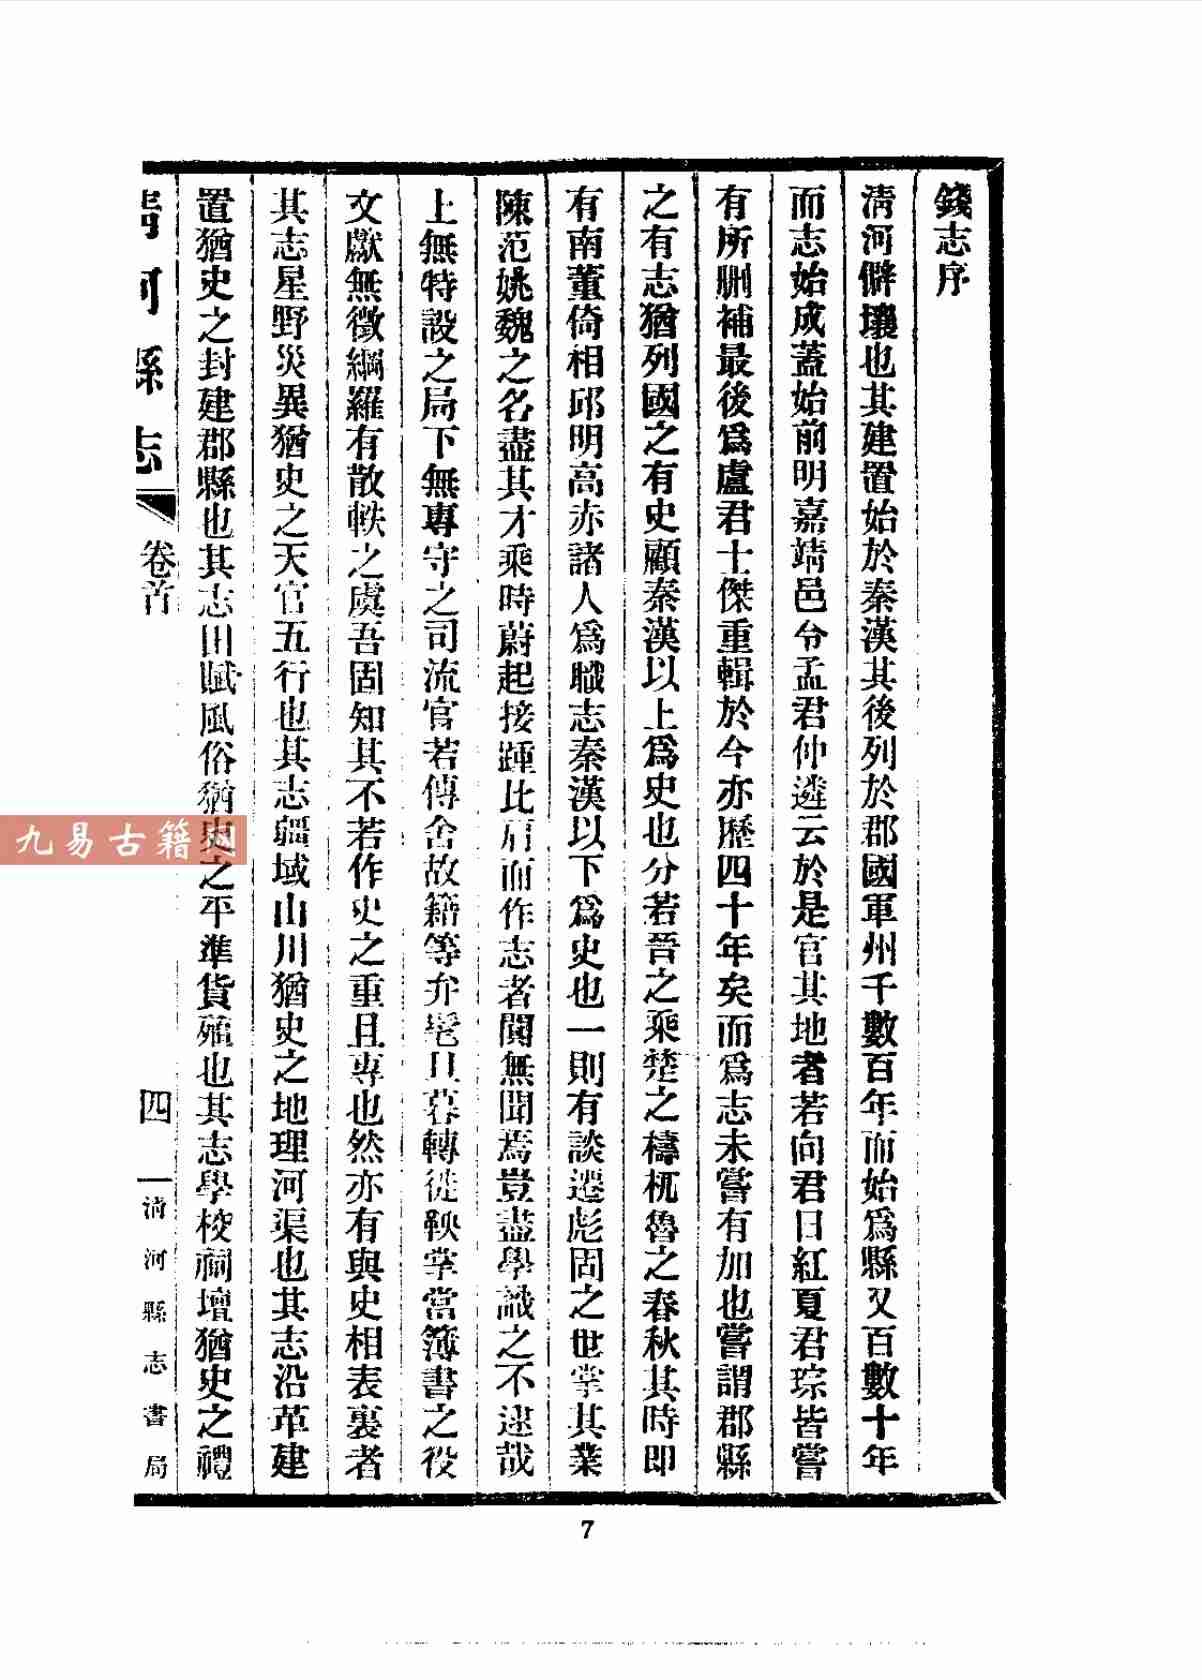 錢志序
清河僻壤也其建置始於秦漢其後列於郡國軍州千數百年而始爲縣又百數十年
而志始成蓋始前明嘉靖邑令孟君仲遴云於是官其地者若向君日紅夏君琮皆嘗
有所刪補最後爲盧君士傑重輯於今亦歷四十年矣而爲志未嘗有加也嘗謂郡縣
之有志猶列國之有史顧秦漢以上爲史也分若晉之乘楚之檮杌魯之春秋其時即
有南董倚相邱明高赤諸人爲職志秦漢以下爲史也一則有談遷彪固之世掌其業
陳范姚魏之名盡其才乘時蔚起接踵比肩而作志者闃無聞焉豈盡學識之不逮哉
上無特設之局下無專守之司流官若傳舍故籍等弁髦旦暮轉徙鞅掌當簿書之役
文獻無徵網羅有散軼之虞吾固知其不若作史之重且專也然亦有與史相表裏者
其志星野災異猶史之天官五行也其志疆域山川猶史之地理河渠也其志沿革建
置猶史之封建郡縣也其志田賦風俗猶史之平準貨殖也其志學校祠壇猶史之禮
清河縣志
卷首
四
清河縣志書局
九易古籍网
7